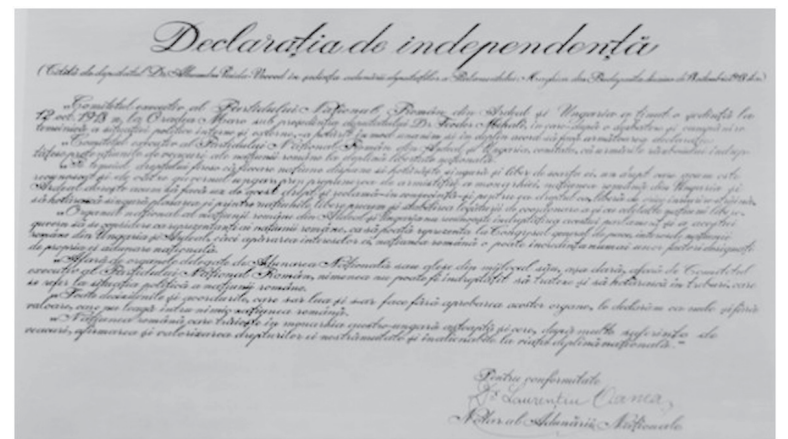 Declarația de independență
(Citită de deputatul Dr. Alexandru Vaida-Voevod în ședința adunării deputaților a Parlamentului Maghiar din Budapesta 18 octombrie 1918
„Comitetul executiv al Partidului Național Român din Ardeal și Ungaria a ținut o ședință la
12 oct. 1918 n. la Oradea Mare sub președenția deputatului Dr. Teodor Mihali, în care după o dezbatere
temeinică a situației politice interne și externe, a hotărît în mod unanim și în deplin acord să facă următoarea declarație:
„Comitetul executiv al Partidului Național Român din Ardeal și Ungaria, constată, că urmările războiului
pretențiunile de veacuri ale națiunii române la deplina libertate națională.
„Pe temeiul dreptului firesc că fiecare națiune dispune se hotărește singură și liber de soarta ei, un drept care acum este
recunoscut și de către guvernul ungar prin propunerea de armistițiu a monarhiei, națiunea română din Ungaria și
Ardeal dorește acum să facă uz de acest drept și reclamă în consecință și pentru ea dreptul ca liberă de orice înrîurire străină,
să hotărască singură plasarea ei printre națiunile libere
„Organul național al națiunii române din Ardeal și Ungaria nu recunoaște îndreptățirea acestui parlament și a acestui
guvern de a se considera ca reprezentanți ai națiunii române, ca să poată reprezenta la Congresul general de pace interesele națiunii
române din Ungaria și Ardeal, căci apărarea intereselor ei, națiunea română o poate încredința numai unor factori designați
de propria ei adunare națională.
„Afară de organele delegate de Adunarea Națională sau alese din mijlocul său, așa dară, afară de Comitetul
executiv al Partidului Național Român, nimenea nu poate fi îndreptățit să trateze și să hotărască în treburi, care
se refer la situația politică a națiunii române.
„Toate deciziunile și acordurile, care s-ar lua și s-ar face fără aprobarea acestor organe, le declarăm ca nule și fără
valoare, care nu leagă întru nimic națiunea română.
„Națiunea română care trăiește în monarhia austro-ungară așteaptă și cere, după multe suferințe de
veacuri, afirmarea și valorizarea drepturilor ei nestrămutate și inalienabile la viața deplină națională.”
Pentru conformitate
Dr. Laurențiu Oanea
Notar al Adunării Naționale